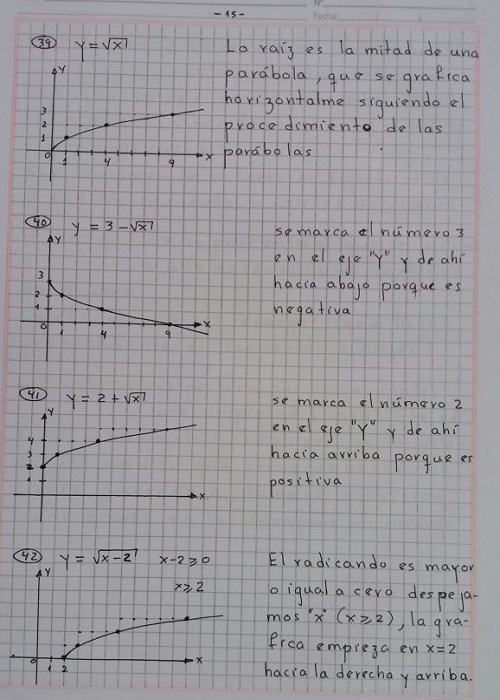 Nº
- 15 -
Fecha:
39 y = √x
La raíz es la mitad de una
parábola, que se grafica
horizontalme siguiendo el
procedimiento de las
parábolas
y
3
2
1
0 1 4 9 x
40 y = 3 - √x
se marca el número 3
en el eje "Y" y de ahí
hacia abajo porque es
negativa
y
3
2
1
0 4 9 x
41 y = 2 + √x
se marca el número 2
en el eje "Y" y de ahí
hacia arriba porque es
positiva
y
4
3
2
1
x
42 y = √x-2 x-2≥0
x≥2
El radicando es mayor
o igual a cero despeja-
mos "x" (x≥2), la grá-
fica empieza en x=2
hacia la derecha y arriba.
y
0 1 2 x